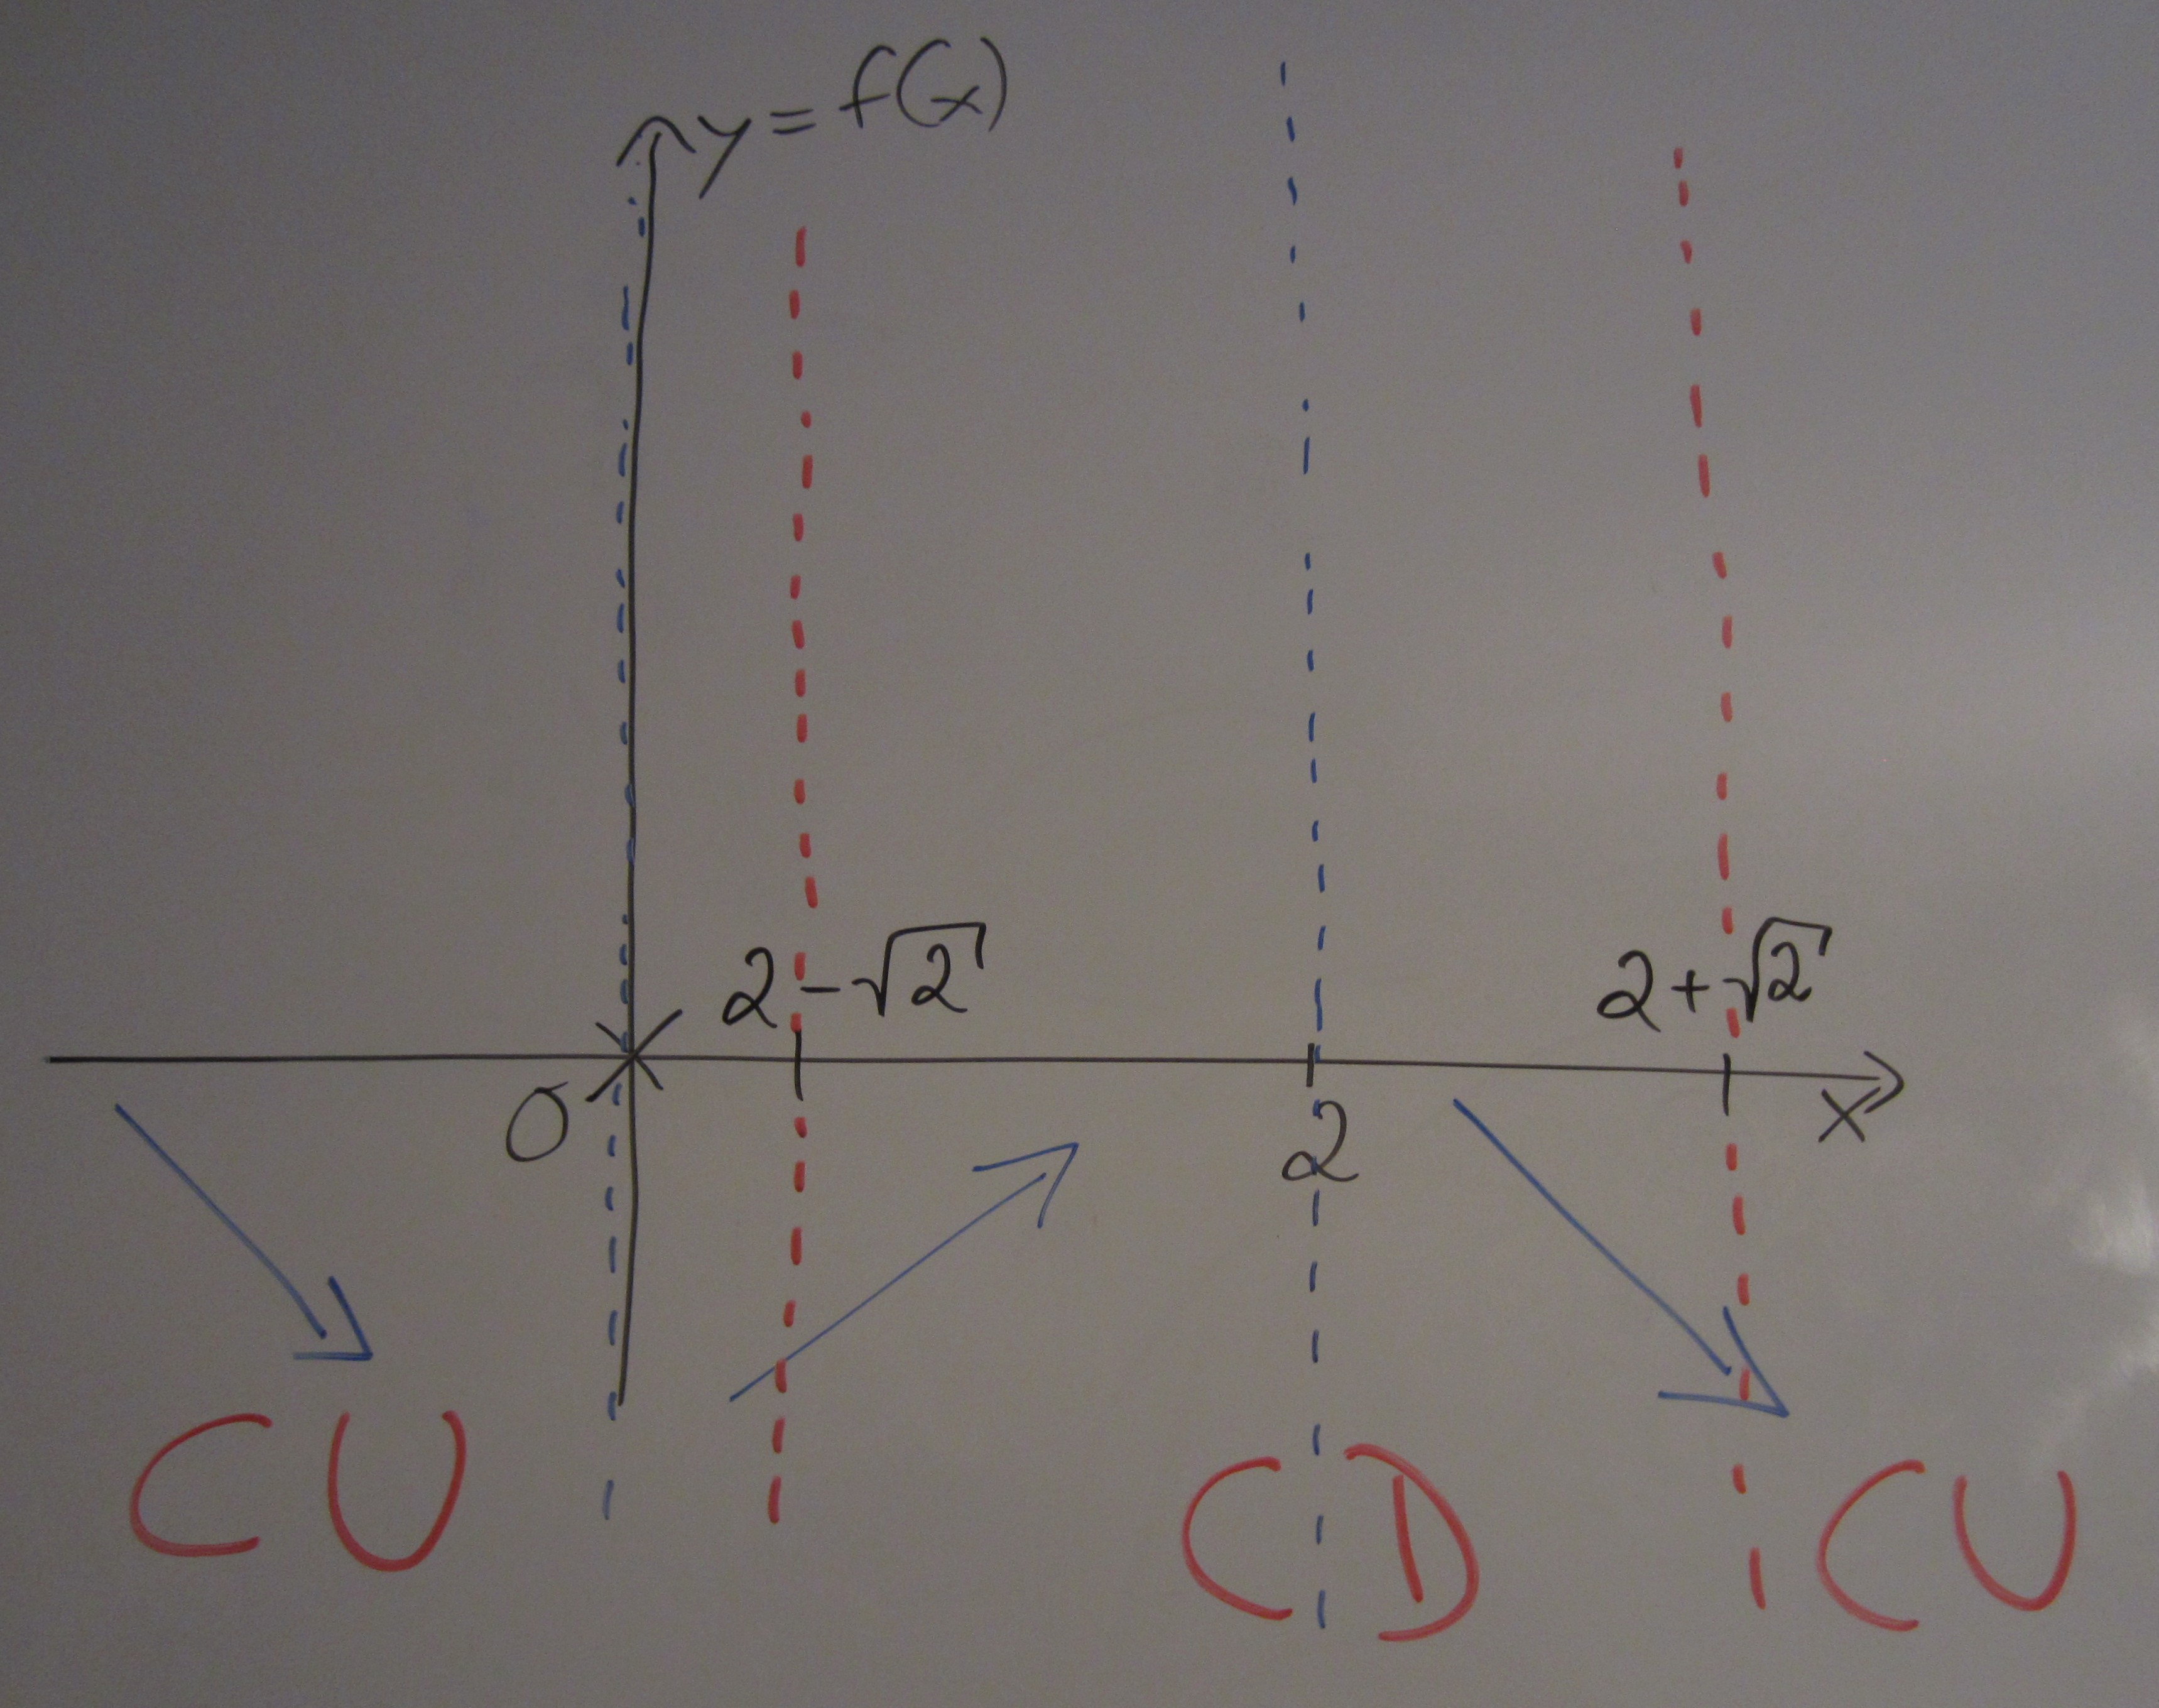 y = f(x)
2 - √2
2 + √2
0
2
x
CU
CD
CU